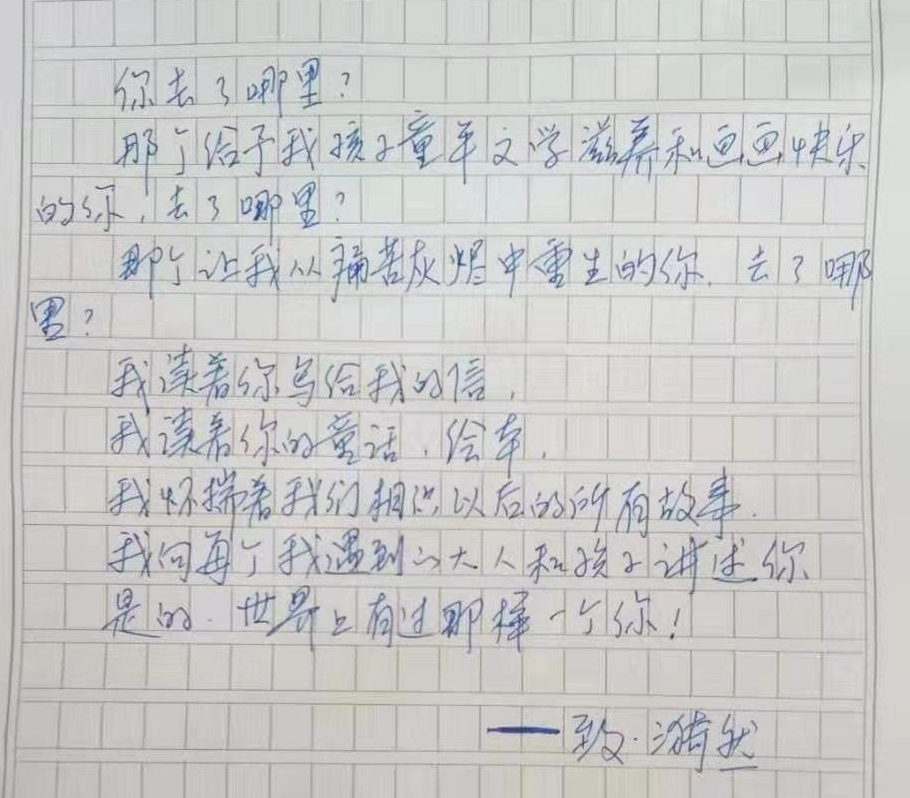 你去了哪里？
那个给予我孩子童年文学滋养和画画快乐
的你，去了哪里？
那个让我从痛苦灰烬中重生的你，去了哪
里？
我读着你写给我的信，
我读着你的童话、绘本，
我怀揣着我们相识以后的所有故事，
我向每个我遇到的大人和孩子讲述你
是的，世界上有过那样一个你！
——致·漪然